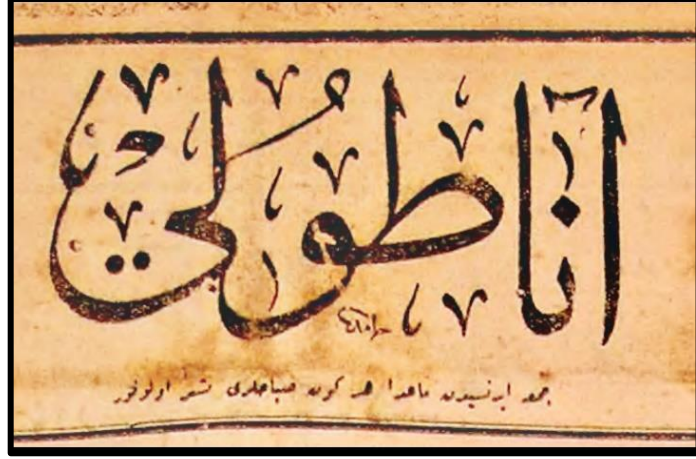 اناطولی
جمعه ایرتسیدن ماعدا هر كون صباحلری نشر اولونور